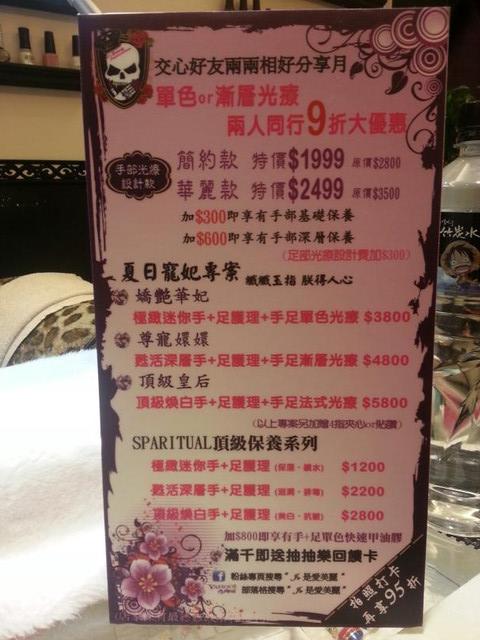 交心好友兩兩相好分享月
單色or漸層光療
兩人同行9折大優惠
手部光療
設計款
簡約款 特價$1999 原價$2800
華麗款 特價$2499 原價$3500
加$300即享有手部基礎保養
加$600即享有手部深層保養
(足部光療設計費加$300)
夏日寵妃專案 纖纖玉指 朕得人心
嬌艷華妃
極緻迷你手+足護理+手足單色光療 $3800
尊寵嬛嬛
甦活深層手+足護理+手足漸層光療 $4800
頂級皇后
頂級煥白手+足護理+手足法式光療 $5800
(以上專案另加贈4指夾心or貼鑽)
SPARITUAL頂級保養系列
極緻迷你手+足護理 (保溼、補水) $1200
甦活深層手+足護理 $2200
頂級煥白手+足護理 $2800
加$800即享有手+足單色快速甲油膠
滿千即送抽抽樂回饋卡
粉絲專頁搜尋"是愛美麗"
部落格搜尋"是愛美麗"
拍照打卡
再享95折
竹炭水